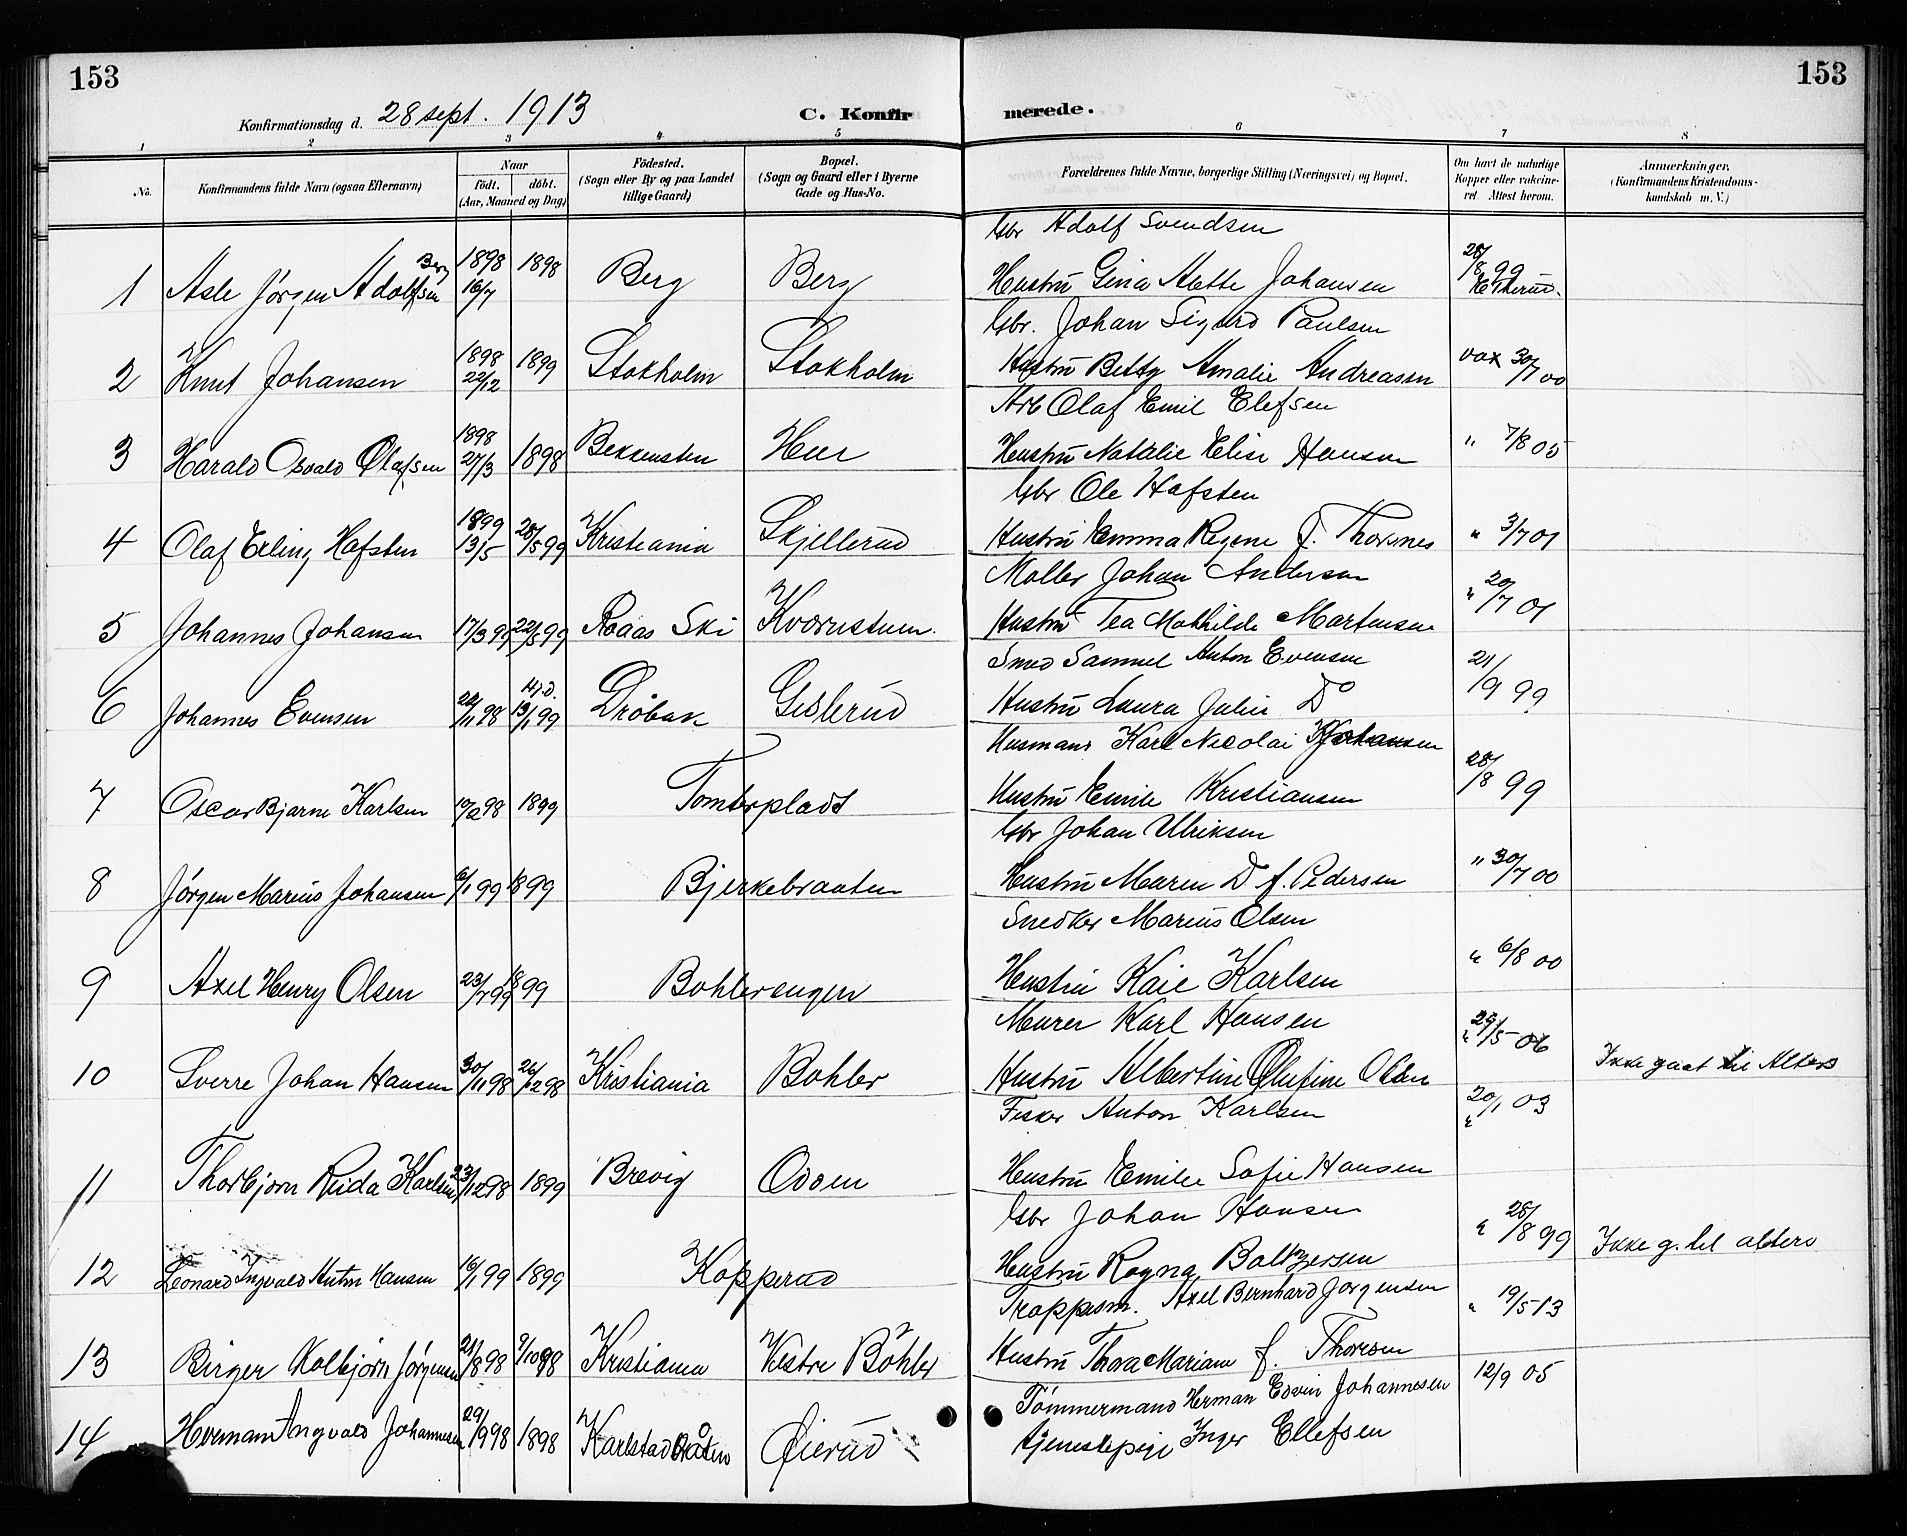 153
153
Konfirmationsdag d. 28 sept. 1913
C. Konfirmerede.
1 2 3 4 5 6 7 8
No.
Konfirmandens fulde Navn (ogsaa Efternavn)
Naar
födt. döbt.
(Aar, Maaned og Dag)
Födested.
(Sogn eller By og paa Landet
tillige Gaard)
Bopæl.
(Sogn og Gaard eller i Byerne
Gade og Hus-No.
Forældrenes fulde Navne, borgerlige Stilling (Næringsvei) og Bopæl.
Om havt de naturlige
Kopper eller vakcine-
ret. Attest herom.
Anmerkninger,
(Konfirmandens Kristendoms-
kundskab m. V.)
Gbr Adolf Svendsen
1 Asle Jörgen Adolfsen Berg 1898 16/7 1898 Berg Berg Hustru Gina Mette Johansen 28/8 99
Gbr. Johan Sigurd Paulsen
2 Knut Johansen 1898 22/12 1899 Stokholm Stokholm Hustru Betsy Amalie Andreassen vax 30/7 00
Arb Olaf Emil Elefsen
3 Harald Osvald Olafsen 1898 27/3 1898 Bekkensten Heer Hustru Natalie Elise Hansen " 7/8 05
Gbr Ole Hafsten
4 Olaf Erling Hafsten 1899 13/5 28/5 99 Kristiania Skjellerud Hustru Emma Regine f. Thorsnes " 3/7 01
Möller Johan Andersen
5 Johannes Johansen 17/3 99 22/5 99 Raaas Ski Kvernstuen. Hustru Tea Mathilde Martensen " 20/7 01
Smed Samuel Anton Evensen
6 Johannes Evensen 11 98 hj.d. 13/1 99 Dröbak Gislerud Hustru Laura Julie Do 21/9 99
Husmans Karl Nicolai Johansen
7 Oscar Bjarne Karlsen 98 1899 Tomterplads Hustru Emilie Kristiansen 28/8 99
Gbr Johan Ulriksen
8 Jörgen Marius Johansen 6/1 99 1899 Bjerkebraaten Hustru Maren D f. Pedersen " 30/7 00
Snedker Marius Olsen
9 Axel Henry Olsen 23/7 99 1899 Bohlerengen Hustru Kaie Karlsen " 6/8 00
Murer Karl Hansen
10 Sverre Johan Hansen 30/11 98 26/12 98 Kristiania Bohler Hustru Albertine Olufine Olsen " 29/5 06 Ikke gaat til Alters
Fisker Anton Karlsen
11 Thorbjorn Reida Karlsen 23/12 98 1899 Brevig Odden Hustru Emilie Sofie Hansen " 20/1 03
Gbr Johan Hansen
12 Leonard Ingvald Anton Hansen 16/1 99 1899 Kopperud Hustru Ragna Baltzersen " 28/8 99 Ikke g. til alters
Trappem. Axel Bernhard Jorgensen
13 Birger Kolbjörn Jörgensen 21/8 98 9/10 98 Kristiania Vestre Böhler Hustru Thora Mariane f. Thoresen " 19/5 13
Tömmermand Herman Edvin Johannesen
14 Herman Ingvald Johannesen 29/9 98 1898 Karlstad Kråkstad Öierud tjenestepige Inger Ellefsen 12/9 05